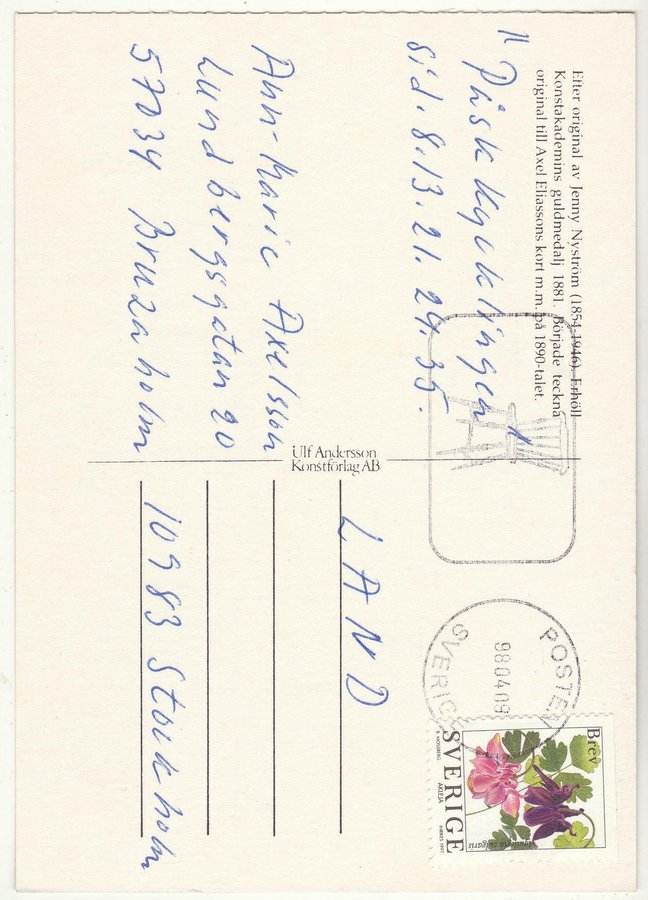 Efter original av Jenny Nyström (1854-1946). Erhöll
Konstakademins guldmedalj 1881. Började teckna
original till Axel Eliassons kort m.m. på 1890-talet.
"Påskkycklingen"
sid. 8.13.21.24.35.
Ann-Marie Axelsson
Lundbergsgatan 20
57034 Bruzaholm
Ulf Andersson
Konstförlag AB
POSTEN
980409
SVERIGE
Brev
SVERIGE
AKLEJA
Aquilegia vulgaris
LAND
10983 Stockholm